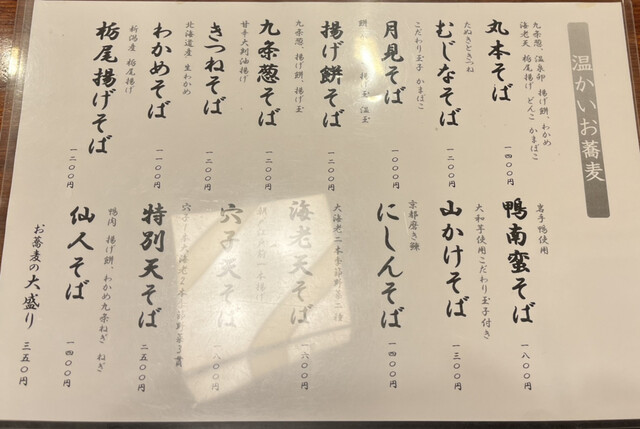 温かいお蕎麦
九条葱、温泉卵、揚げ餅、わかめ
海老天 栃尾揚げ どんこ かまぼこ
丸本そば
一四〇〇円
たぬきときつね
むじなそば
一二〇〇円
こだわり玉子 かまぼこ
月見そば
一〇〇〇円
揚げ餅そば
一二〇〇円
九条葱、揚げ餅、揚げ玉
九条葱そば
一二〇〇円
甘辛大判油揚げ
きつねそば
一二〇〇円
北海道産 生わかめ
わかめそば
一一〇〇円
新潟産 栃尾揚げ
栃尾揚げそば
一二〇〇円
岩手鴨使用
鴨南蛮そば
一八〇〇円
大和芋使用こだわり玉子付き
山かけそば
一三〇〇円
京都磨き鰊
にしんそば
一四〇〇円
大海老二本季節野菜二種
海老天そば
一六〇〇円
穴子天そば
一八〇〇円
特別天そば
二五〇〇円
鴨肉 揚げ餅、わかめ九条ねぎ ねぎ
仙人そば
一四〇〇円
お蕎麦の大盛り
三五〇円